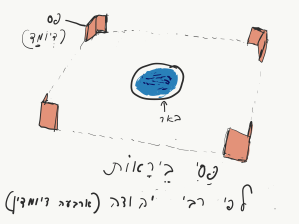 פס
(דְיוּמַד)
באר
פַּסֵּי בֵּירָאוֹת
לפי רבי יהודה (ארבעה דיומדין)